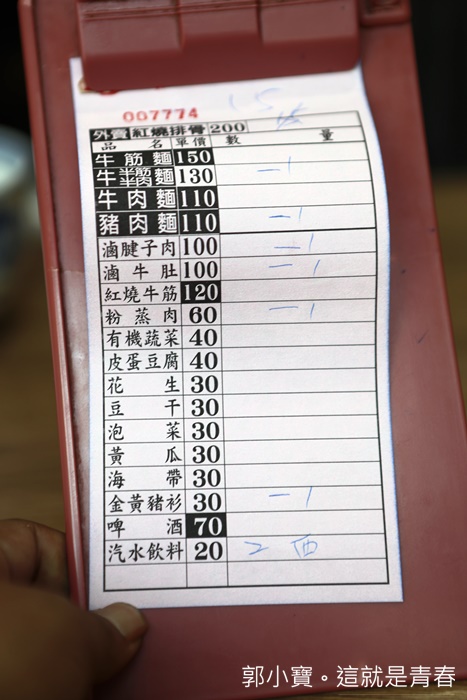 007774
15
外賣 紅燒排骨 200
品名 單價 數量
牛筋麵 150
牛半筋半肉麵 130 一 1
牛肉麵 110
豬肉麵 110 一 1
滷腱子肉 100 一 1
滷牛肚 100 一 1
紅燒牛筋 120
粉蒸肉 60 一 1
有機蔬菜 40
皮蛋豆腐 40
花生 30
豆干 30
泡菜 30
黃瓜 30
海帶 30
金黃豬衫 30 一 1
啤酒 70
汽水飲料 20 2
郭小寶。這就是青春